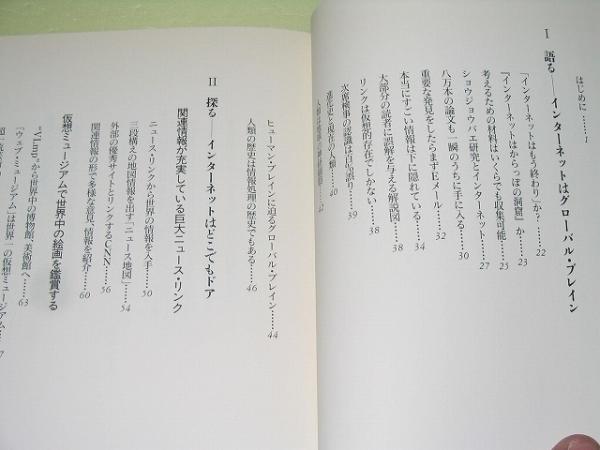 はじめに……1
I 語る──インターネットはグローバル・ブレイン
「インターネットはもう終わり」か?……22
『インターネットはからっぽの洞窟』か……23
考えるための材料はいくらでも収集可能……25
ショウジョウバエ研究とインターネット……27
八万本の論文も一瞬のうちに手に入る……30
重要な発見をしたらまずEメール……32
本当にすごい情報は下に隠れている……34
大部分の読者に誤解を与える解説図……38
リンクは仮想的存在でしかない……38
次席検事の認識は百号誤り……39
進化史と現在の人類……40
ヒューマン・ブレインに迫るグローバル・ブレイン……44
人類の歴史は情報処理の歴史でもある……46
II 探る──インターネットはどこでもドア
関連情報が充実している巨大ニュース・リンク
ニュース・リンクから世界の情報を入手……50
三段構えの地図情報を出す「ニュース地図」……54
外部の優秀サイトとリンクするCNN……56
関連情報の形で多様な意見、情報を紹介……60
仮想ミュージアムで世界中の絵画を鑑賞する
"VLmp"から世界中の博物館、美術館へ……63
「ウェブ・ミュージアム」は世界一の仮想ミュージアム……